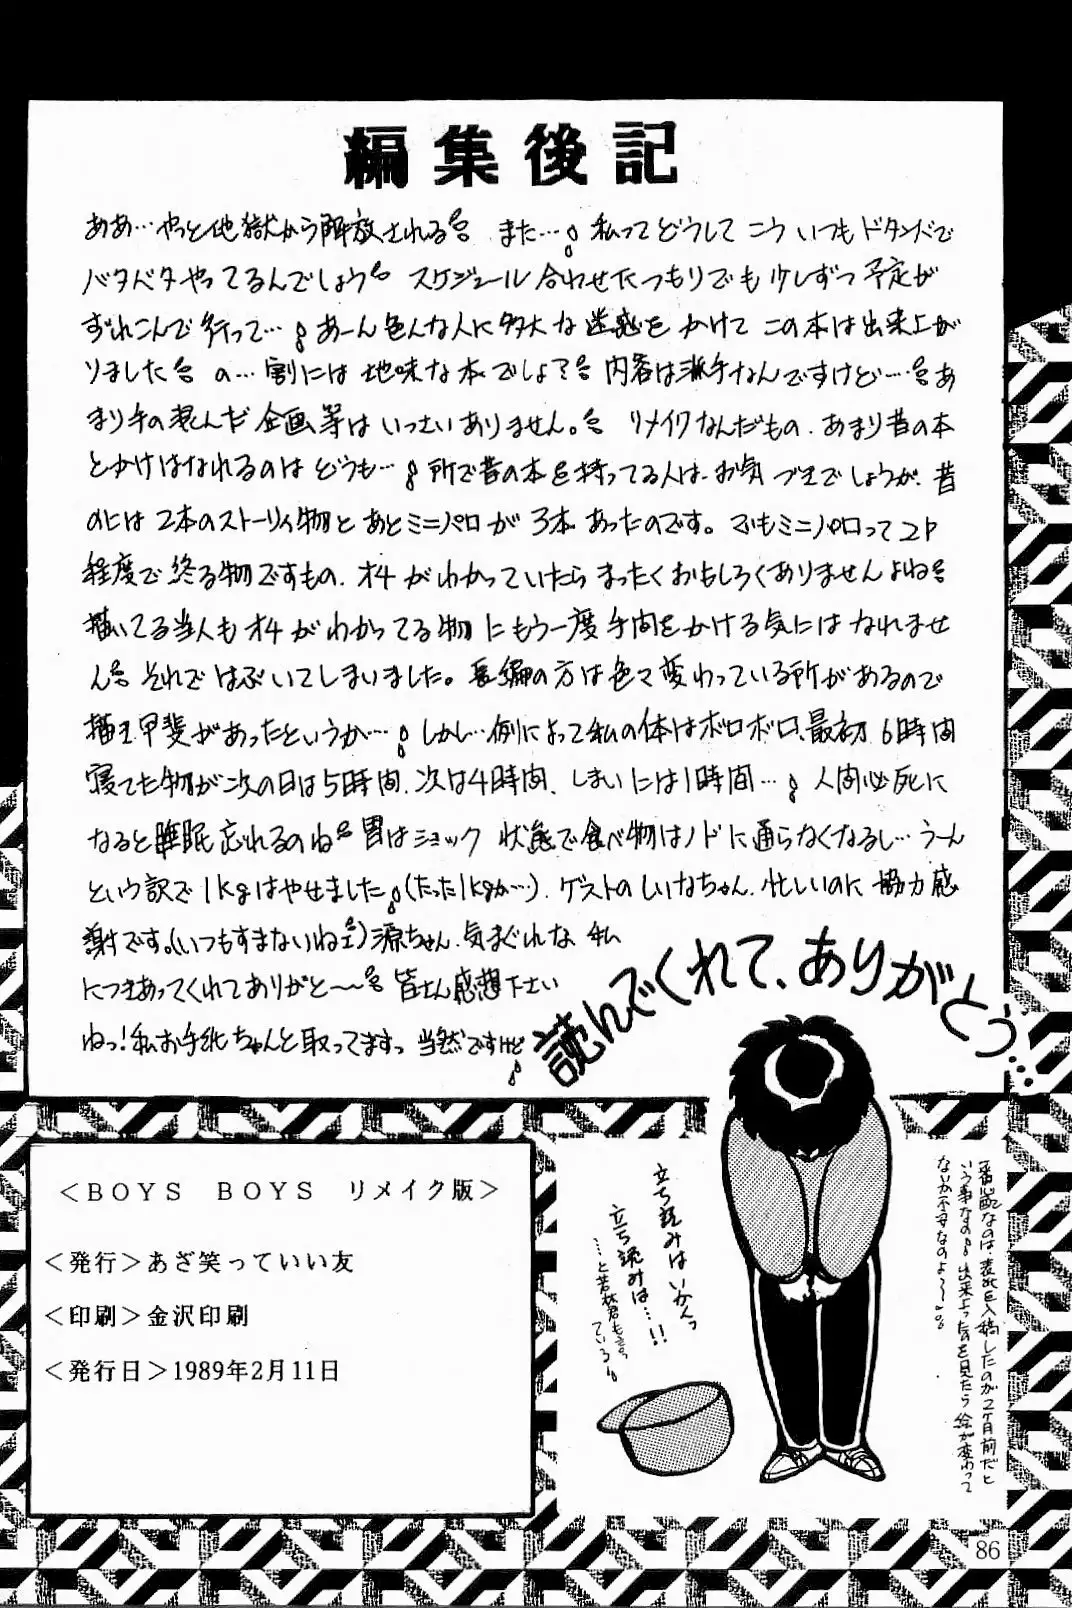 編集後記
ああ…やっと地獄から解放される また… 私ってどうしてこういつもドタンバで
バタバタやってるんでしょう スケジュール合わせたつもりでも少しずつ予定が
ずれこんで行って… あーん色んな人に多大な迷惑をかけてこの本は出来上が
りました の…割には地味な本でしょ? 内容は派手なんですけど… あ
まり手の混んだ企画等はいっさいありません。 リメイクなんだもの、あまり昔の本
とかけはなれるのはどうも… 所で昔の本を持ってる人は、お気づきでしょうが、昔
のには2本のストーリィ物とあとミニパロが3本あったのです。でもミニパロって2P
程度で終る物ですもの、オチがわかっていたらまったくおもしろくありませんよね
描いてる当人もオチがわかってる物にもう一度手間をかける気にはなれませ
ん それではぶいてしまいました。長編の方は色々変わっている所があるので
描く甲斐があったというか… しかし…例によって私の体はボロボロ、最初6時間
寝てた物が次の日は5時間、次は4時間、しまいには1時間… 人間必死に
なると睡眠忘れるのね 胃はショック状態で食べ物はノドに通らなくなるし…うーん
という訳で1kgはやせました(たった1kgか…)、ゲストのしいなちゃん、忙しいのに協力感
謝です。(いつもすまないねェ)源ちゃん、気まぐれな私
につきあってくれてありがと〜〜 皆さん感想下さい
ねっ!私お手紙ちゃんと取ってますっ 当然ですけど
読んでくれて、ありがとう…
立ち読みはいかんっ
立ち読みは…!!
…と若林君も言っ
ている
一番心配なのは、表紙を入稿したのが2ヶ月前だと
いう事なの 出来上った本を見たら絵が変わって
ないか不安なのよ〜
<BOYS BOYS リメイク版>
<発行>あざ笑っていい友
<印刷>金沢印刷
<発行日>1989年2月11日
86